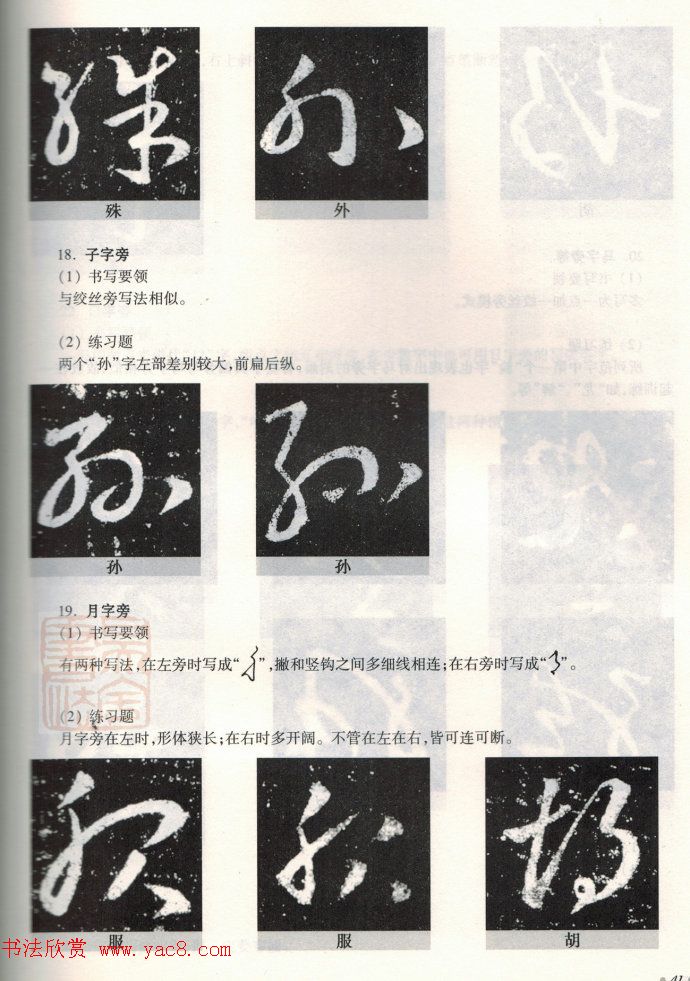 殊 外
18. 子字旁
(1) 书写要领
与绞丝旁写法相似。
(2) 练习题
两个“孙”字左部差别较大,前扁后纵。
孙 孙
19. 月字旁
(1) 书写要领
有两种写法,在左旁时写成“ ”,撇和竖钩之间多细线相连;在右旁时写成“ ”。
(2) 练习题
月字旁在左时,形体狭长;在右时多开阔。不管在左在右,皆可连可断。
服 服 胡
书法欣赏 www.yac8.com
41